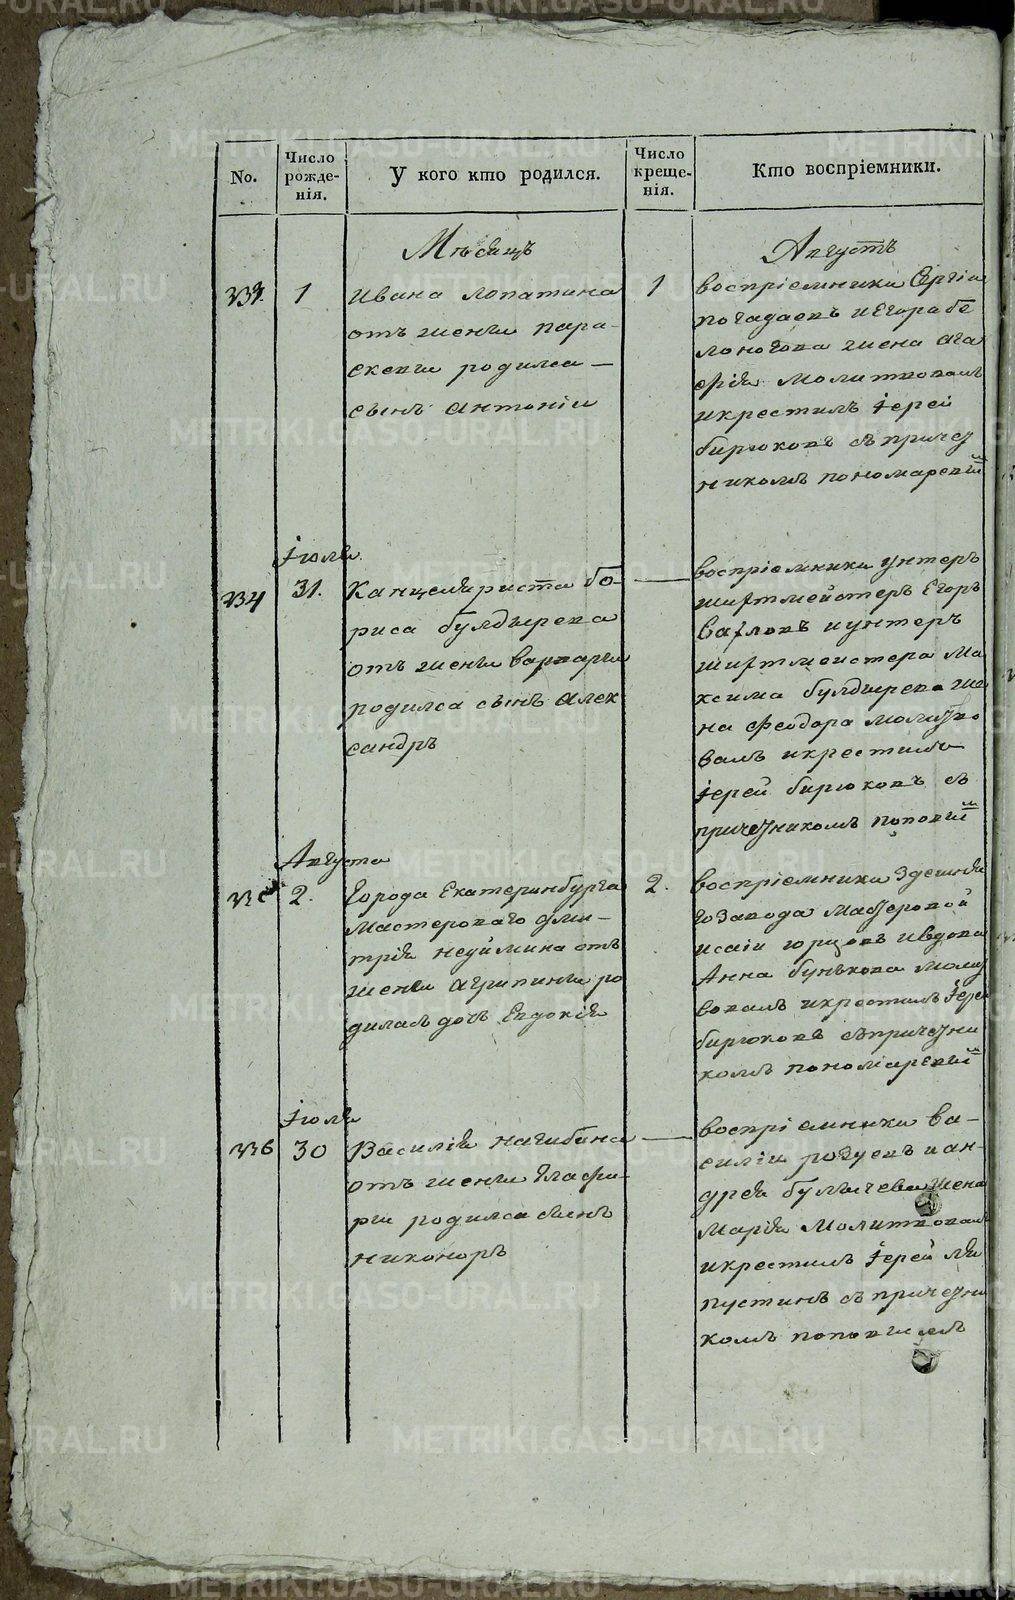 No.
Число рожде-нія.
У кого кто родился.
Число креще-нія.
Кто воспріемники.
Мѣсяцъ
Августъ
1
Ивана Лопатина
отъ жены пара-
скевы родился
сынъ Антоніи
1
воспріемники Сергіи
погадаевъ и Егора бе
лоногова жена ага
фія молитвовалъ
и крестилъ іерей
бирюковъ съ причет
никомъ пономаревым
Іюля
31.
Канцеляриста бо-
риса булдырева
отъ жены варвары
родился сынъ алек
сандръ
воспріемники унтеръ
шихтмейстеръ Егоръ
унтеръ
шихтмеистера ма
ксима булдырева же
на феодора молитво
валъ и крестилъ
іерей бирюковъ съ
причетникомъ поповым
Августа
2.
города Екатеринбурга
мастероваго дми-
трія
отъ
жены агрипины ро
дилась дочь Евдокія
2.
воспріемники здешня
го завода мастеровой
исаіи
и вдова
Анна бунькова молит
вовалъ и крестилъ іерей
бирюковъ съ причетни
комъ пономаревым
Іюля
30
Василія нагибина
отъ жены глафи-
ры родился сынъ
никоноръ
воспріемники ва-
силіи
и ан-
дрея булычева жена
марія молитвовалъ
и крестилъ іерей ля
пустинъ съ причетни
комъ поповымъ
METRIKI.GASO-URAL.RU